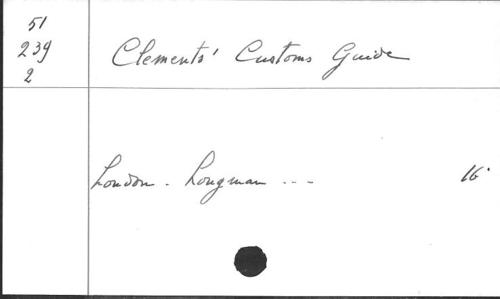 51
239
2
Clements' Customs Guide
London. Longman --- 16°